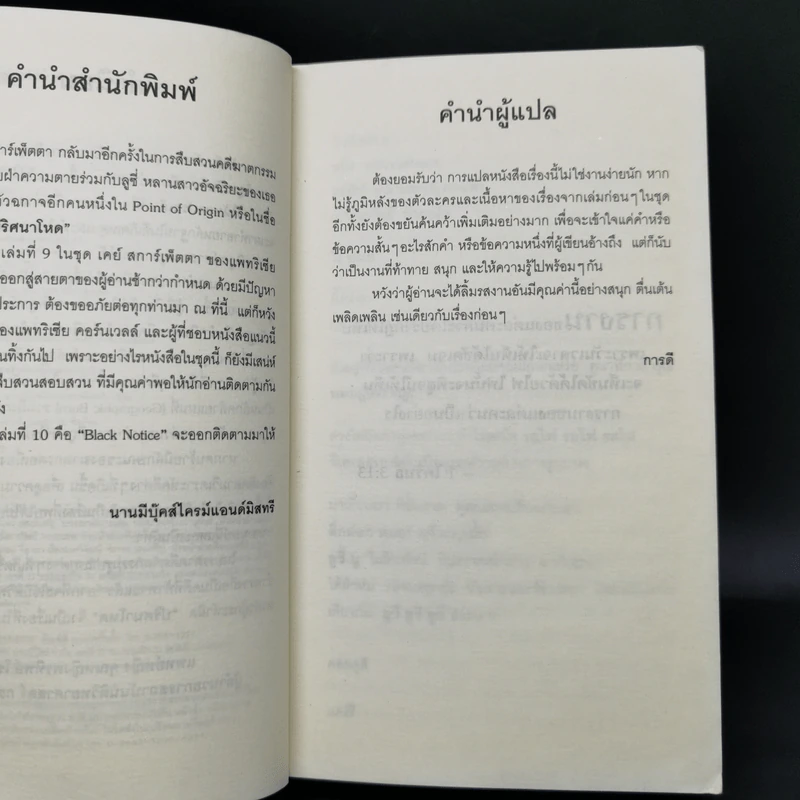 คำนำสำนักพิมพ์
การ์เพ็ตตา กลับมาอีกครั้งในการสืบสวนคดีฆาตกรรม
ฝ่าความตายร่วมกับลูซี่ หลานสาวอัจฉริยะของเธอ
ตัวฉกาจอีกคนหนึ่งใน Point of Origin หรือในชื่อ
ริศนาโหด"
เล่มที่ 9 ในชุด เคย์ สการ์เพ็ตตา ของแพทริเซีย
ออกสู่สายตาของผู้อ่านช้ากว่ากำหนด ด้วยมีปัญหา
ประการ ต้องขออภัยต่อทุกท่านมา ณ ที่นี้ แต่ก็หวัง
ของแพทริเซีย คอร์นเวลล์ และผู้ที่ชอบหนังสือแนวนี้
นทิ้งกันไป เพราะอย่างไรหนังสือในชุดนี้ ก็ยังมีเสน่ห์
สืบสวนสอบสวน ที่มีคุณค่าพอให้นักอ่านติดตามกัน
ล่มที่ 10 คือ "Black Notice" จะออกติดตามมาให้
นานมีบุ๊คส์ไครม์แอนด์มิสทรี
คำนำผู้แปล
ต้องยอมรับว่า การแปลหนังสือเรื่องนี้ไม่ใช่งานง่ายนัก หาก
ไม่รู้ภูมิหลังของตัวละครและเนื้อหาของเรื่องจากเล่มก่อนๆ ในชุด
อีกทั้งยังต้องขยันค้นคว้าเพิ่มเติมอย่างมาก เพื่อจะเข้าใจแค่คำหรือ
ข้อความสั้นๆ อะไรสักคำ หรือข้อความหนึ่งที่ผู้เขียนอ้างถึง แต่ก็นับ
ว่าเป็นงานที่ท้าทาย สนุก และให้ความรู้ไปพร้อมๆ กัน
หวังว่าผู้อ่านจะได้ลิ้มรสงานอันมีคุณค่านี้อย่างสนุก ตื่นเต้น
เพลิดเพลิน เช่นเดียวกับเรื่องก่อนๆ
การดี